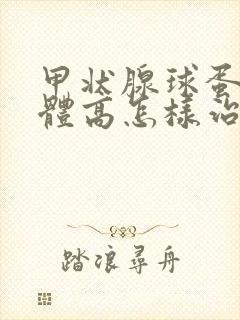 甲状腺球蛋
體高怎樣治
踏浪尋舟